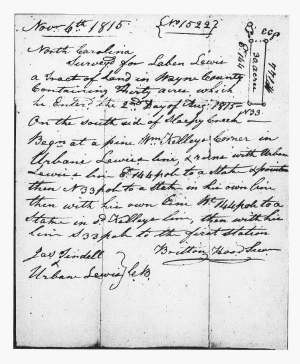 Nov. 6th 1815 (No 1522)
North Carolina
Surveyd for Laben Lewis
a tract of Land in Wayne County
Containing thirty acres which
he Enterd the 2nd Day of Aug. 1815
On the south side of Sleepy Creek
Begns at a pine Wm Kelleys Corner in
Urbane Lewis's line, & runs with Urban
Lewis's line Et 144 poles to a Stake &
then N 33 pob to a Stake in his own line
then with his own line Wt 144 pob to a
Stake in sd Kelleys line, then with his
line S 33 pob to the first station
Jas Tindell
Urbane Lewis } C.B.
Britton Hood Sur
30 acres
N 33